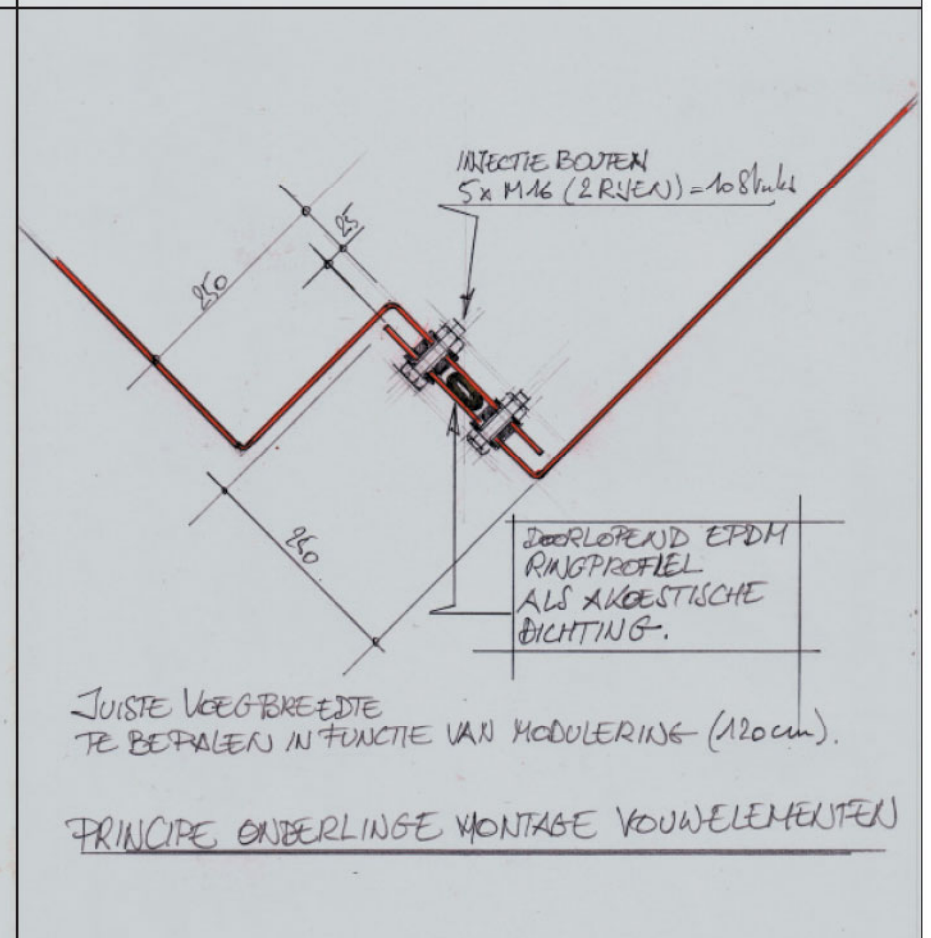 INJECTIE BOUTEN
5x M16 (2 RIJEN) = 10 Stuks
25
250
250
DOORLOPEND EPDM
RINGPROFIEL
ALS AKOESTISCHE
DICHTING.
JUISTE VOEGBREEDTE
TE BEPALEN IN FUNCTIE VAN MODULERING (120cm).
PRINCIPE ONDERLINGE MONTAGE VOUWELEMENTEN